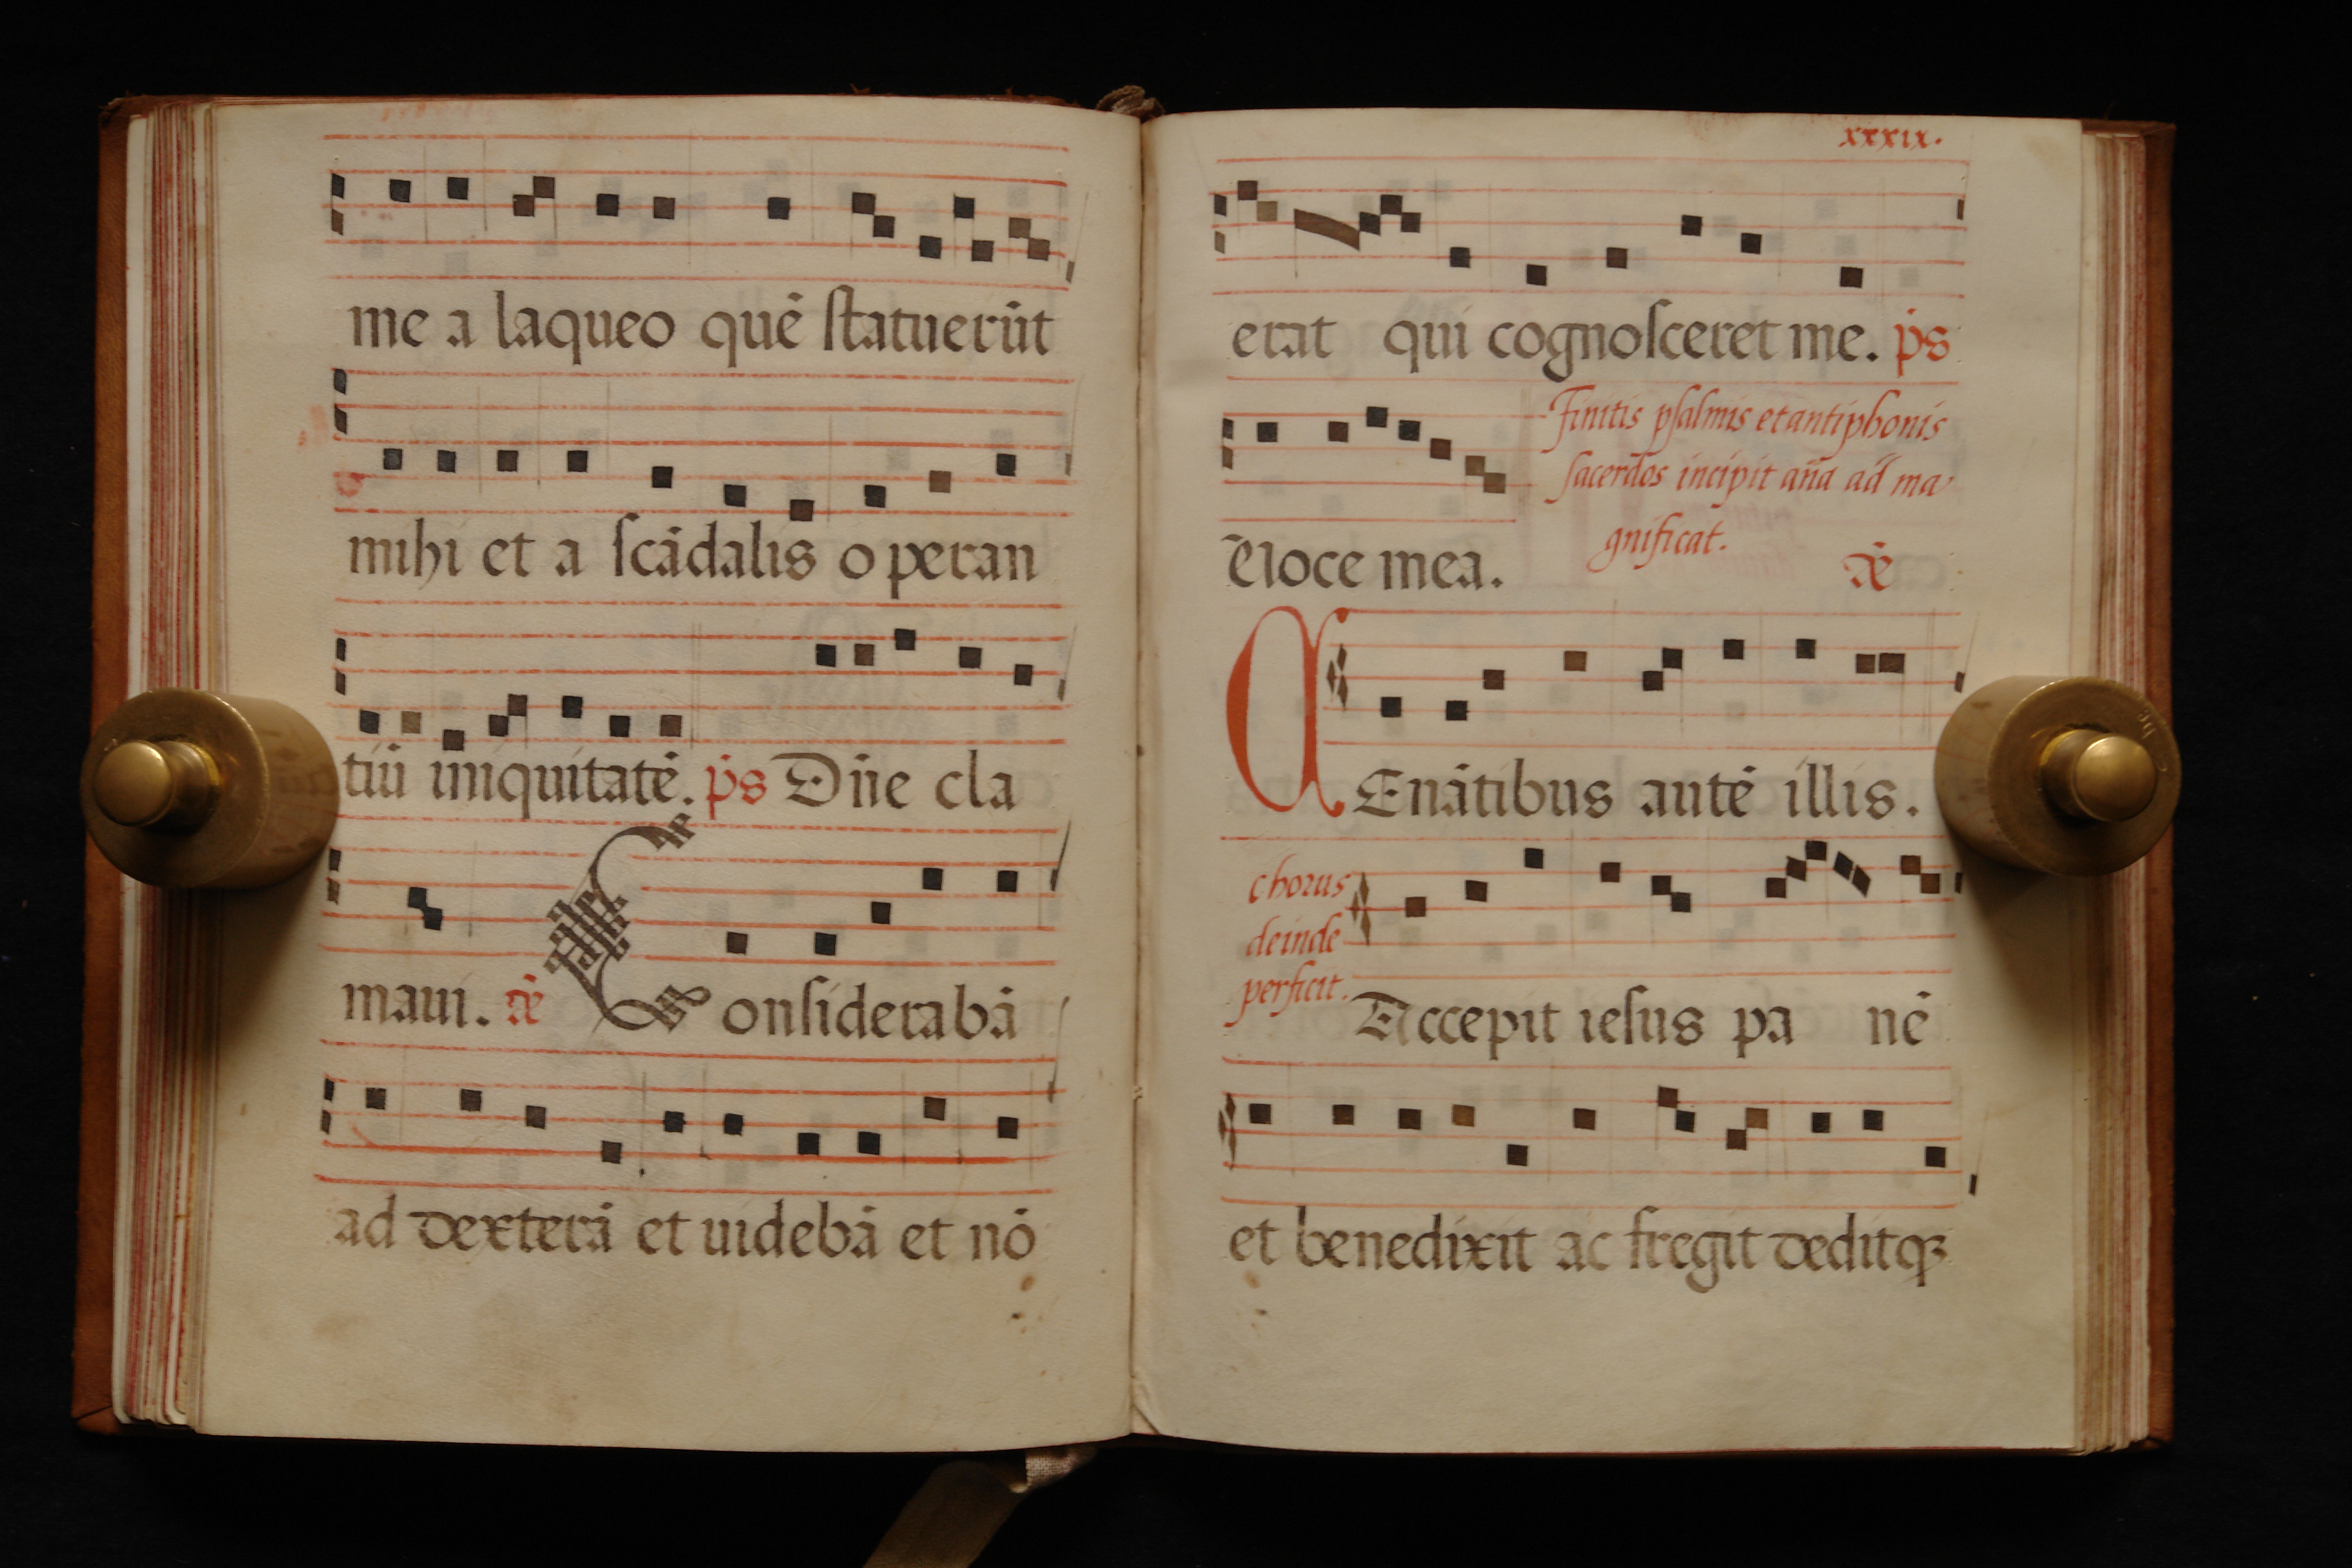 me a laqueo quē ſtatuerūt
mihi et a ſcādalis operan
tiū iniquitatē. p̄s Dn̄e cla
maui. ā Conſiderabā
ad dexterā et uidebā et nō
xxxix.
erat qui cognoſceret me. p̄s
Finitis pſalmis et antiphonis
ſacerdos incipit an̄a ad ma
gnificat.
Uoce mea. ā
CEnātibus autē illis.
chorus
deinde
perficit.
Accepit ieſus panē
et benedixit ac fregit deditqꝫ